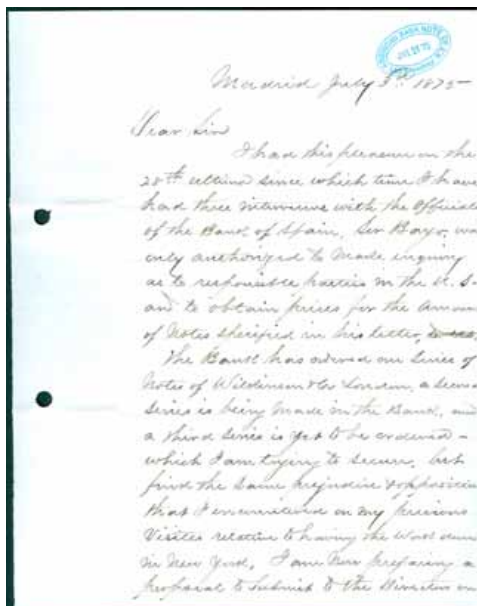 AMERICAN BANK NOTE CO. N.Y.
JUL 21 75
Madrid July 3rd 1875
Dear Sir
I had this pleasure on the
28th ultimo since which time I have
had three interviews with the Official
of the Bank of Spain, Ser Bayo, was
only authorized to made inquiry
as to responsible parties in the U. S.
and to obtain prices for the amoun
of Notes specified in his letter,
The Bank has ordered one Series of
Notes of London, a secon
series is being made in the Bank, and
a third series is yet to be ordered -
which I am trying to secure, but
find the same prejudice & oppositio
that I encountered on my previous
Visites relative to having the Work done
in New York, I am now preparing a
proposal to submit to the Directors